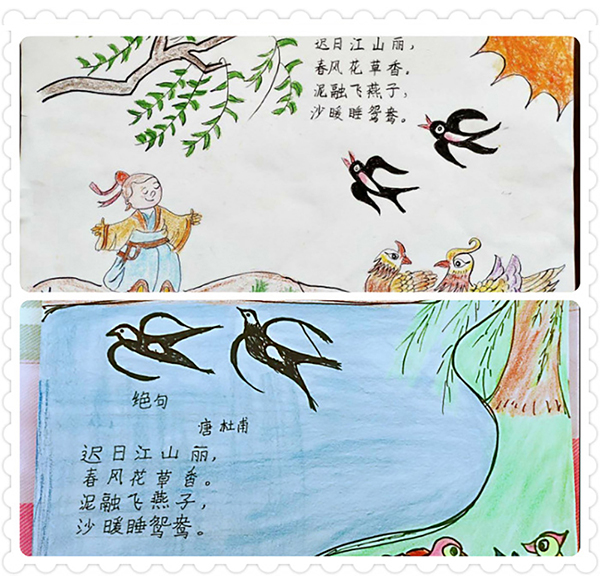 迟日江山丽，
春风花草香。
泥融飞燕子，
沙暖睡鸳鸯。
绝句
唐 杜甫
迟日江山丽，
春风花草香。
泥融飞燕子，
沙暖睡鸳鸯。